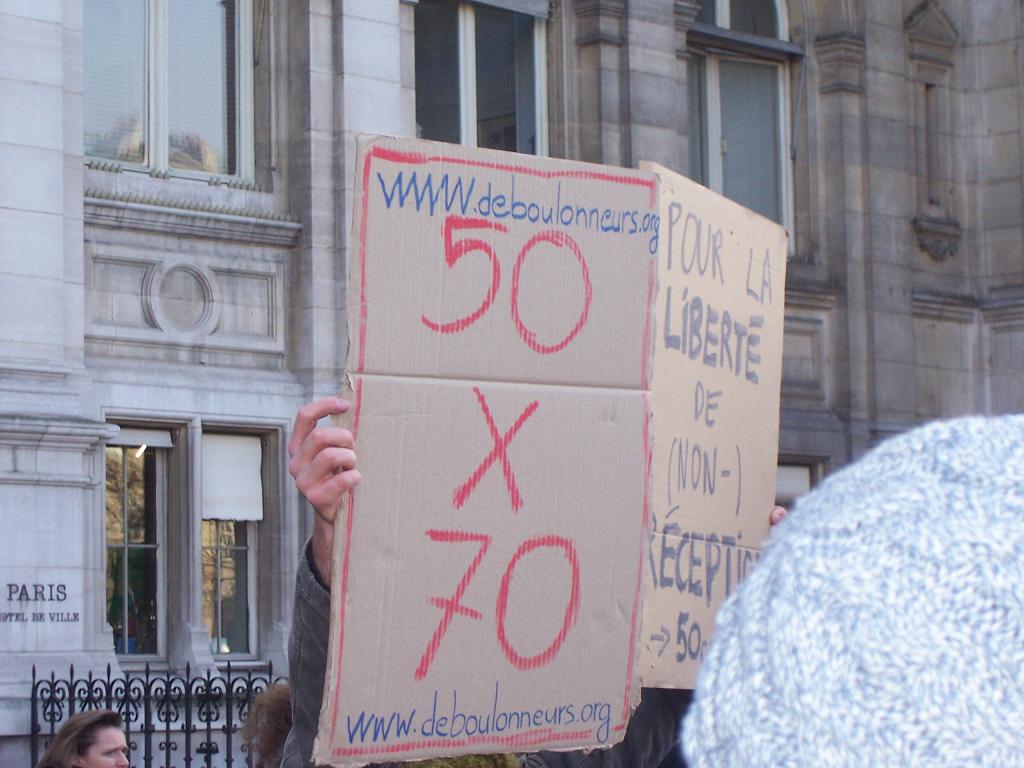 www.deboulonneurs.org
50
X
70
www.deboulonneurs.org
POUR LA
LIBERTÉ
DE
(NON-)
RÉCEPTI
→ 50
PARIS
HOTEL DE VILLE